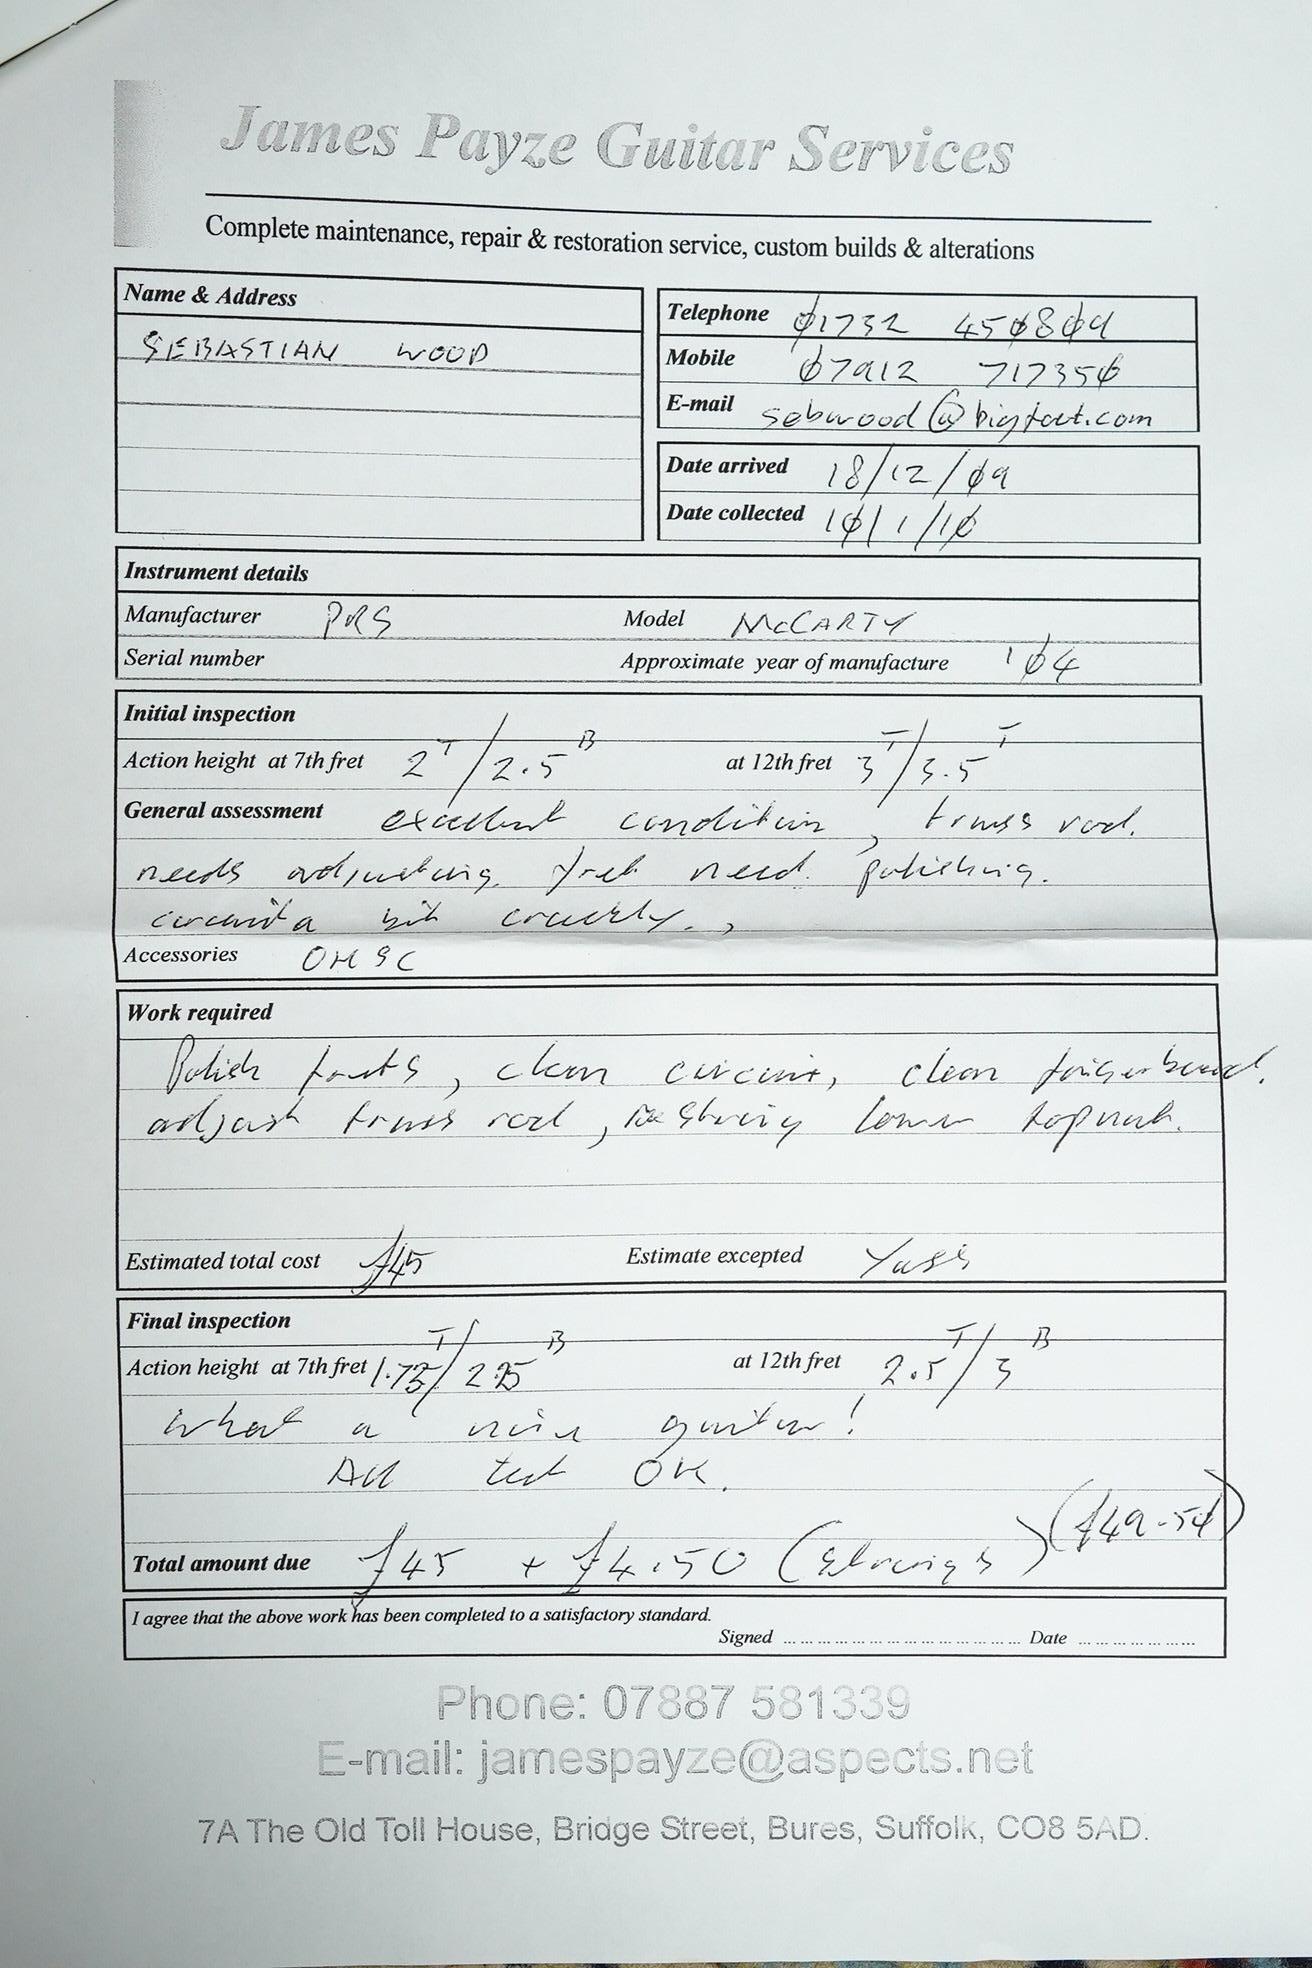 James Payze Guitar Services
Complete maintenance, repair & restoration service, custom builds & alterations
Name & Address
SEBASTIAN WOOD
Telephone 01732 450809
Mobile 07912 717350
E-mail sebwood@bigfoot.com
Date arrived 18/12/09
Date collected 10/1/10
Instrument details
Manufacturer PRS Model McCARTY
Serial number Approximate year of manufacture '04
Initial inspection
Action height at 7th fret 2 T / 2.5 B at 12th fret 3 T / 3.5 T
General assessment excellent condition, truss rod.
needs adjusting. fret need. polishing.
circuit a bit crackly.,
Accessories OHSC
Work required
Polish frets, clean circuit, clean fingerboard.
adjust truss rod, restring lower topnut.
Estimated total cost £45 Estimate excepted
Final inspection
Action height at 7th fret 1.75 T / 2.25 B at 12th fret 2.5 T / 3 B
What a nice guitar!
All test OK.
(£49-50)
Total amount due £45 + £4.50 (Strings)
I agree that the above work has been completed to a satisfactory standard.
Signed ........................... Date ..................
Phone: 07887 581339
E-mail: jamespayze@aspects.net
7A The Old Toll House, Bridge Street, Bures, Suffolk, CO8 5AD.